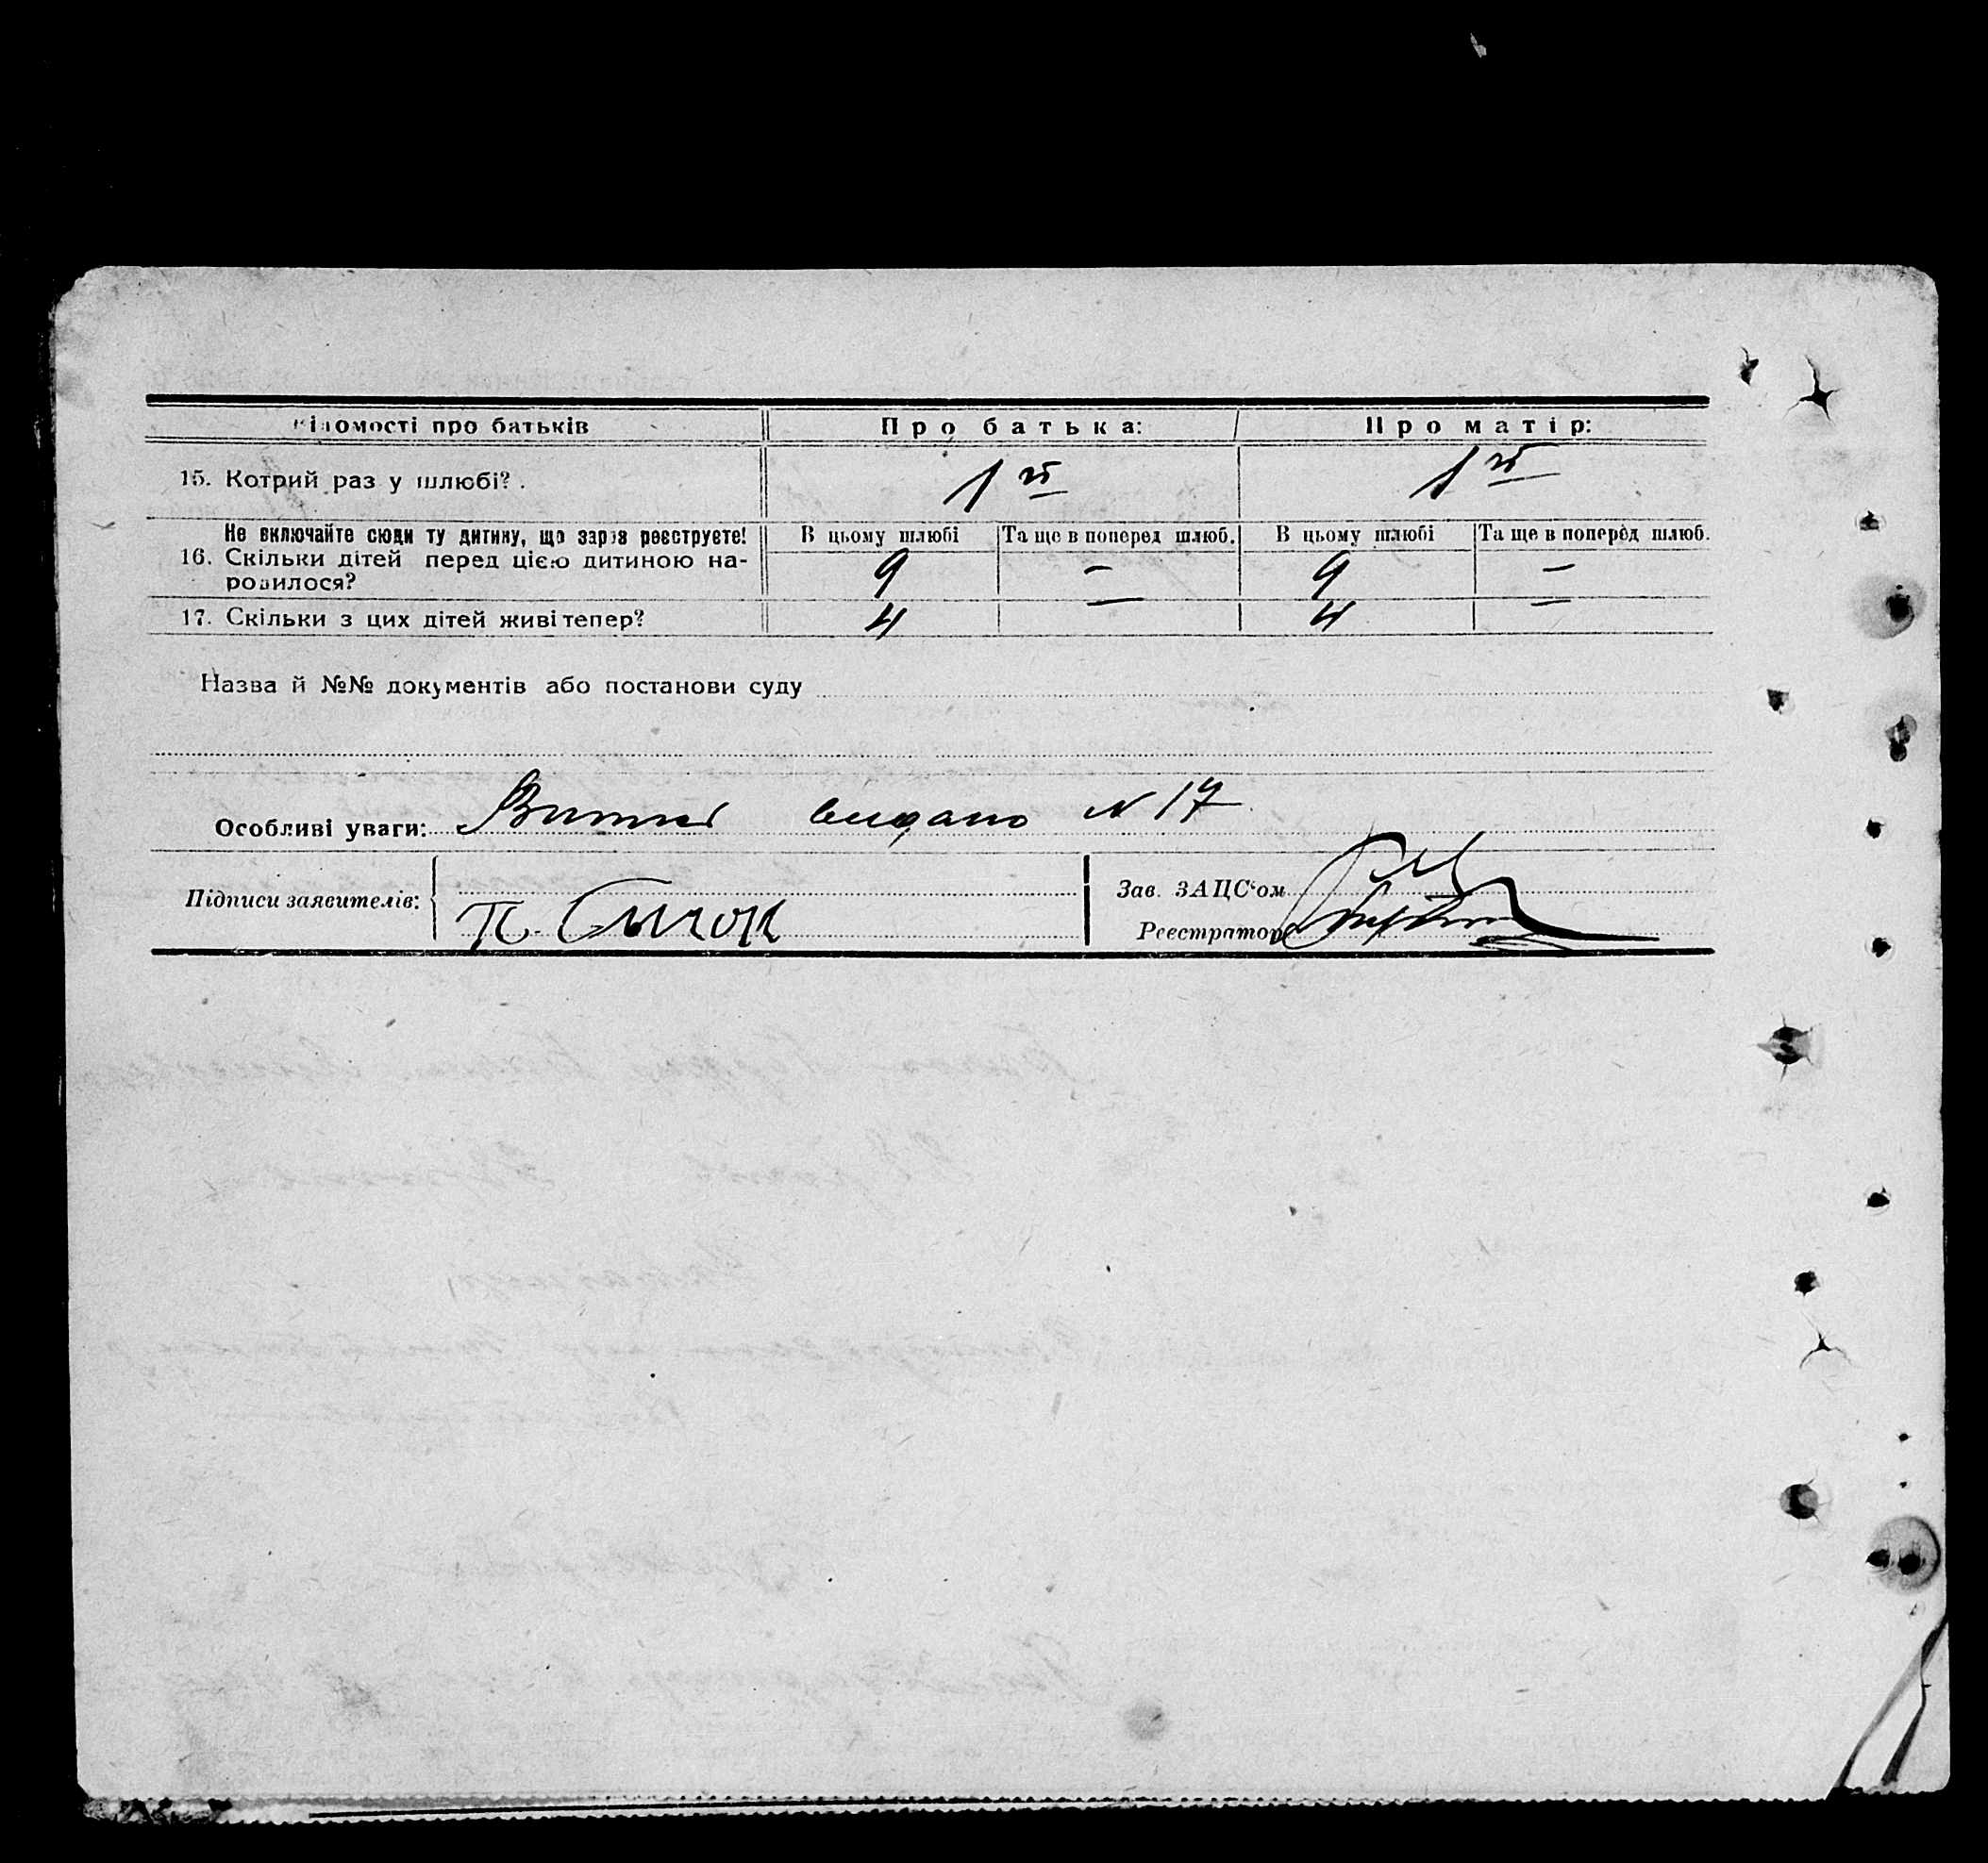 Відомості про батьків Про батька: Про матір:
15. Котрий раз у шлюбі? . 1й 1й
Не включайте сюди ту дитину, що зараз реєструєте! В цьому шлюбі Та ще в поперед шлюб. В цьому шлюбі Та ще в поперед шлюб.
16. Скільки дітей перед цією дитиною на- 9 — 9 —
родилося?
17. Скільки з цих дітей живі тепер? 4 — 4 —
Назва й №№ документів або постанови суду
Особливі уваги: видано N 17
Підписи заявителів: Зав. ЗАЦС'ом
П. Сычок Реєстратор